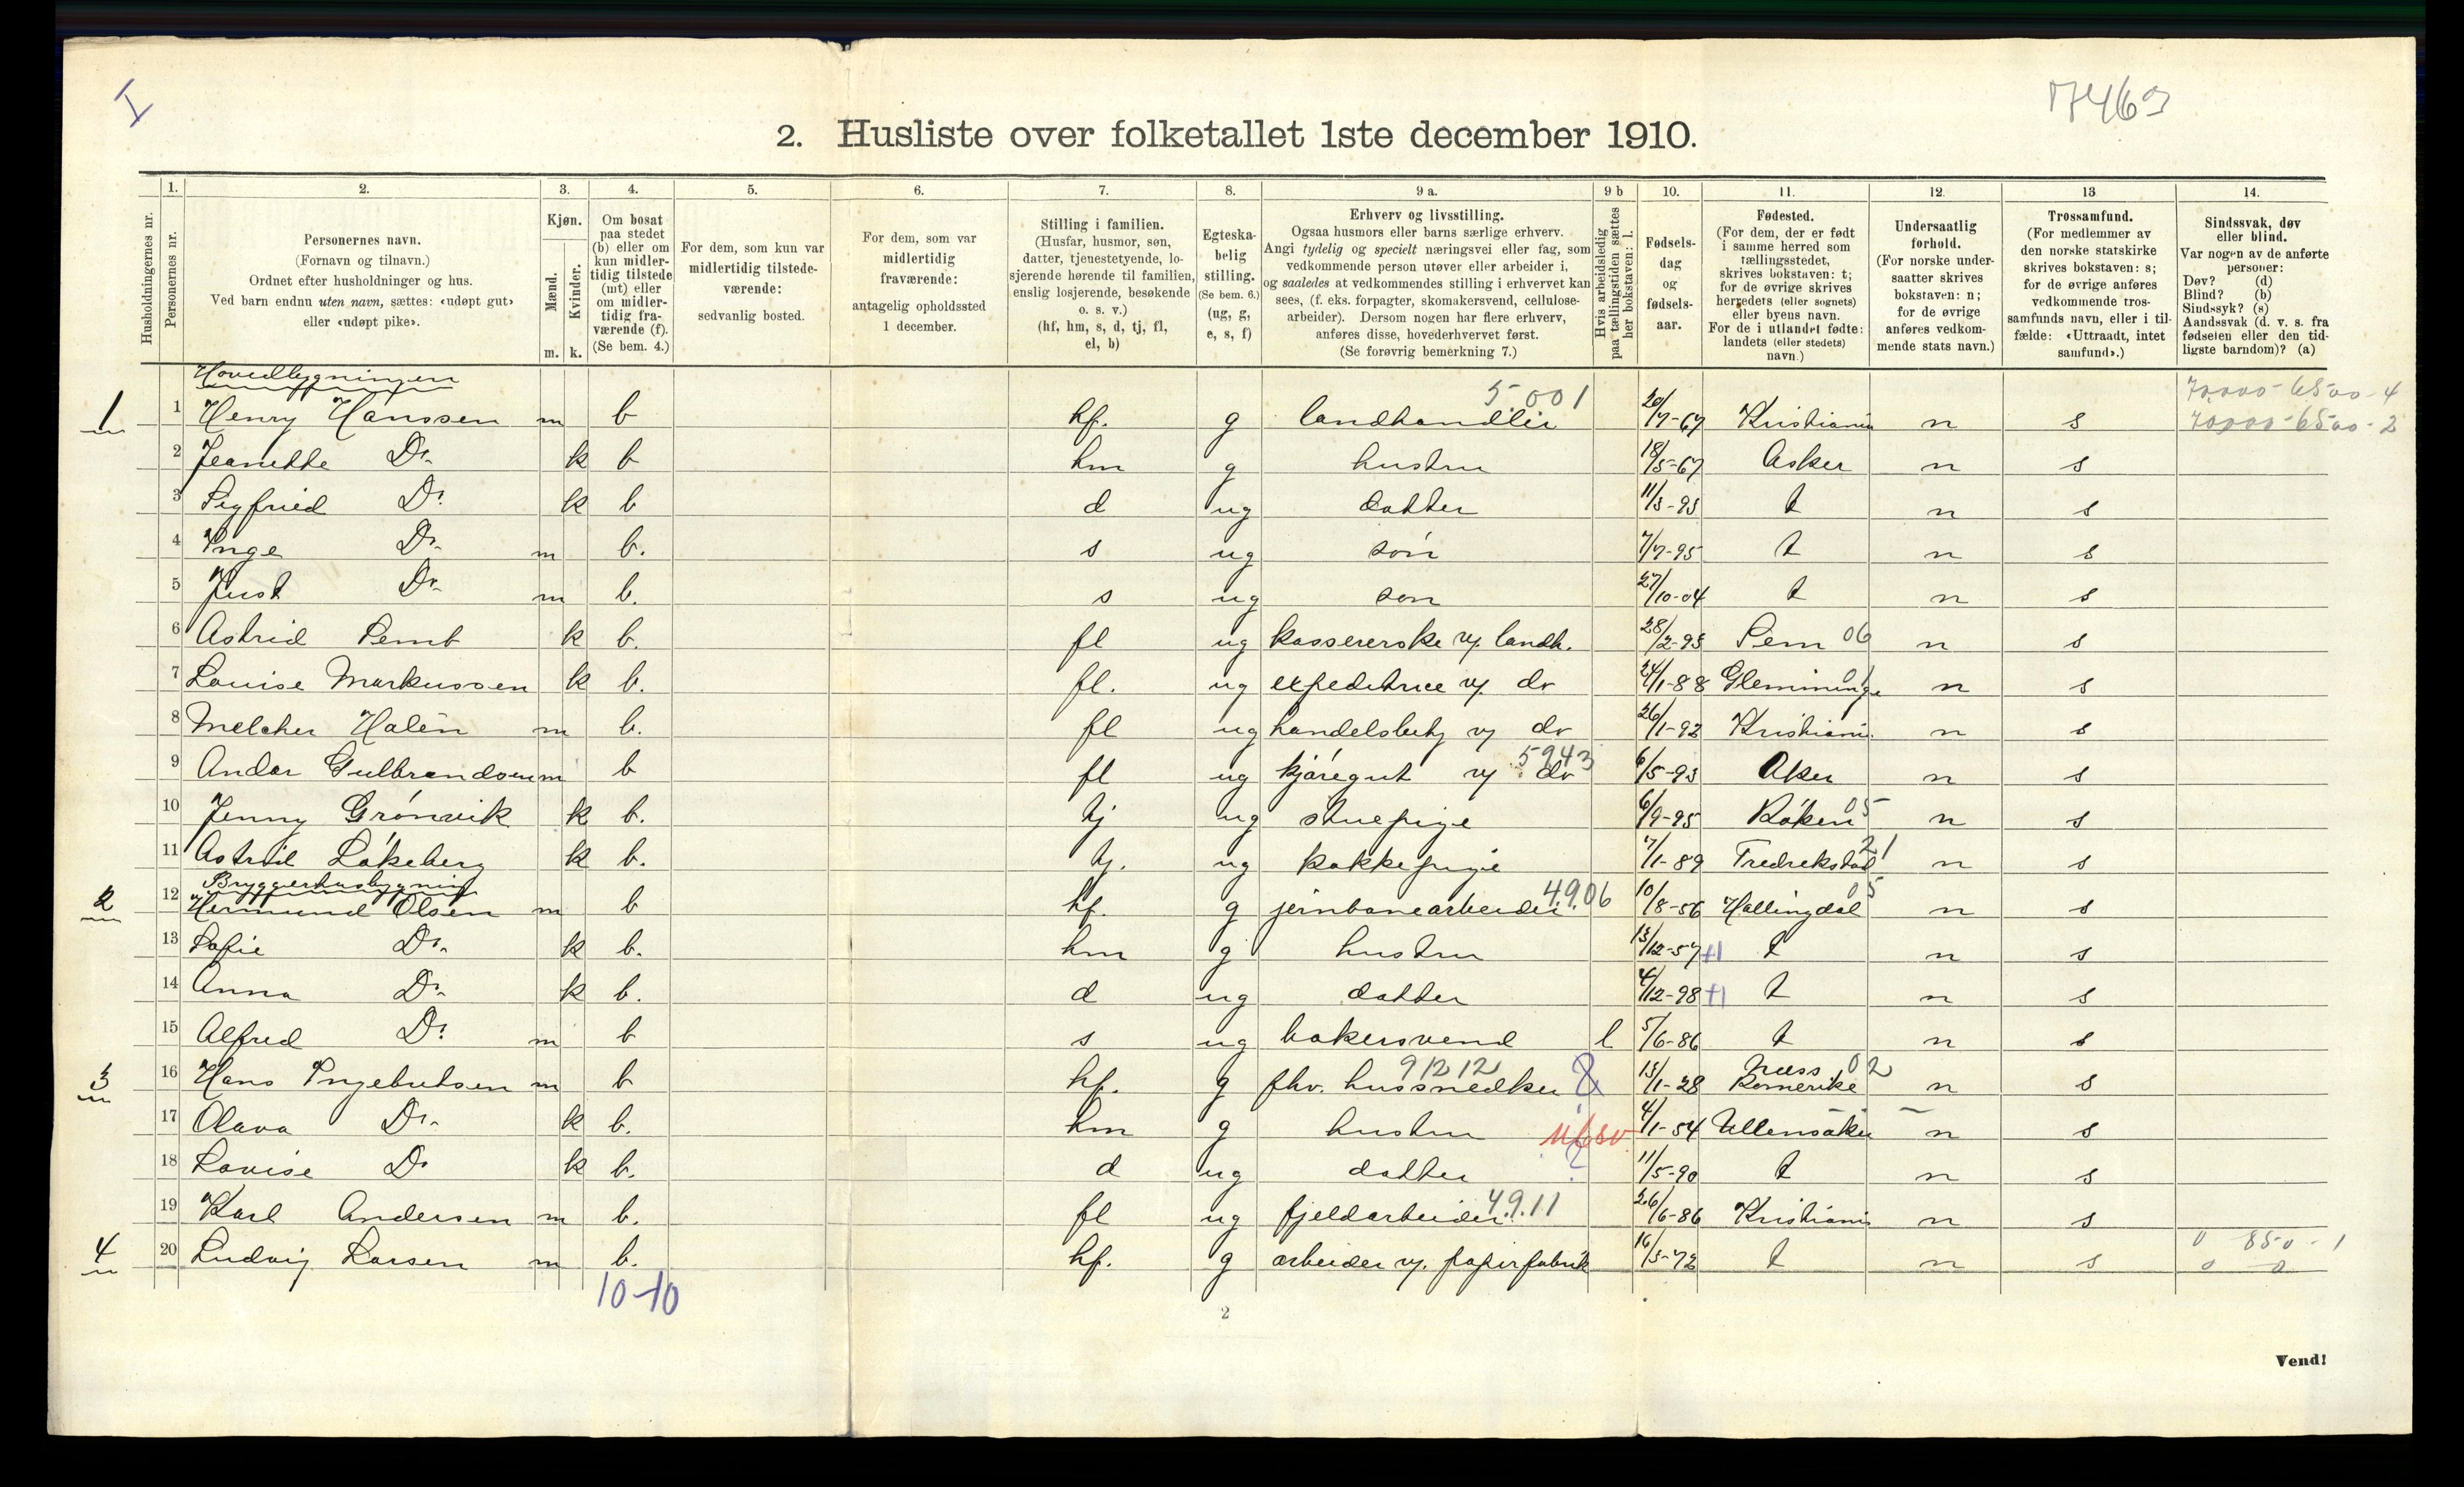 I
7463
2. Husliste over folketallet 1ste december 1910.
Husholdningernes nr.
1. Personernes nr.
2. Personernes navn.
(Fornavn og tilnavn.)
Ordnet efter husholdninger og hus.
Ved barn endnu uten navn, sættes: «udøpt gut»
eller «udøpt pike».
3. Kjøn.
Mænd. m.
Kvinder. k.
4. Om bosat
paa stedet
(b) eller om
kun midler-
tidig tilstede
(mt) eller
om midler-
tidig fra-
værende (f).
(Se bem. 4.)
5. For dem, som kun var
midlertidig tilstede-
værende:
sedvanlig bosted.
6. For dem, som var
midlertidig
fraværende:
antagelig opholdssted
1 december.
7. Stilling i familien.
(Husfar, husmor, søn,
datter, tjenestetyende, lo-
sjerende hørende til familien,
enslig losjerende, besøkende
o. s. v.)
(hf, hm, s, d, tj, fl,
el, b)
8. Egteska-
belig
stilling.
(Se bem. 6.)
(ug, g,
e, s, f)
9 a. Erhverv og livsstilling.
Ogsaa husmors eller barns særlige erhverv.
Angi tydelig og specielt næringsvei eller fag, som
vedkommende person utøver eller arbeider i,
og saaledes at vedkommendes stilling i erhvervet kan
sees, (f. eks. forpagter, skomakersvend, cellulose-
arbeider). Dersom nogen har flere erhverv,
anføres disse, hovederhvervet først.
(Se forøvrig bemerkning 7.)
9 b Hvis arbeidsledig
paa tællingstiden sættes
her bokstaven: l.
10. Fødsels-
dag
og
fødsels-
aar.
11. Fødested.
(For dem, der er født
i samme herred som
tællingsstedet,
skrives bokstaven: t;
for de øvrige skrives
herredets (eller sognets)
eller byens navn.
For de i utlandet fødte:
landets (eller stedets)
navn.)
12. Undersaatlig
forhold.
(For norske under-
saatter skrives
bokstaven: n;
for de øvrige
anføres vedkom-
mende stats navn.)
13 Trossamfund.
(For medlemmer av
den norske statskirke
skrives bokstaven: s;
for de øvrige anføres
vedkommende tros-
samfunds navn, eller i til-
fælde: «Uttraadt, intet
samfund».)
14. Sindssvak, døv
eller blind.
Var nogen av de anførte
personer:
Døv? (d)
Blind? (b)
Sindssyk? (s)
Aandssvak (d. v. s. fra
fødselen eller den tid-
ligste barndom)? (a)
Hovedbygningen 5001 70,000-6500-4
1 1 Henry Hanssen m b hf. g landhandler 20/7-67 Kristiania n s 70,000-6500-2
2 Jeanette Do. k b hm g hustru 18/5-67 Asker n s
3 Sigfried Do. k b d ug datter 11/3-93 t n s
4 Inge Do. m b. s ug søn 7/7-95 t n s
5 Just Do. m b. s ug søn 27/10-04 t n s
6 Astrid Semb k b. fl ug kassererske v. landh. 28/2-93 Sem 06 n s
7 Louise Markussen k b. fl. ug expeditrice v. do 24/1-88 Glemminge 01 n s
8 Melcher Halén m b. fl ug handelsbetj v. do 26/1-92 Kristiania n s
9 Andor Gulbrandsen m b fl ug kjøregut v. do 5943 6/5-93 Aker n s
10 Jenny Grønvik k b. tj ug stuepige 6/9-95 Røken 05 n s
11 Astrid Løkeberg k b. tj. ug kokkepige 7/1-89 Fredrekstad 21 n s
Bryggerhusbygning
2 12 Hermund Olsen m b hf. g jernbanearbeider 4.9.06 10/8-56 Hallingdal 05 n s
13 Sofie Do. k b. hm g hustru 13/12-57 +1 t n s
14 Anna Do. k b. d ug datter 4/12-98 +1 t n s
15 Alfred Do. m b s ug bakersvend l 5/6-86 t n s
3 16 Hans Ingebretsen m b hf. g fhv. hussnedker 91212 13/1-28 Næss Romerike 02 n s
17 Olava Do. k b. hm g hustru 4/1-54 Ullensaker n s
18 Lovise Do k b. d ug datter ? 11/5-90 t n s
19 Karl Andersen m b. fl ug fjeldarbeider 4.9.11 26/6-86 Kristiania n s
4 20 Ludvig Larsen m b. hf. g arbeider v. papirfabrik 16/3-72 t n s 0 850-1
0 0
10-10
2
Vend!